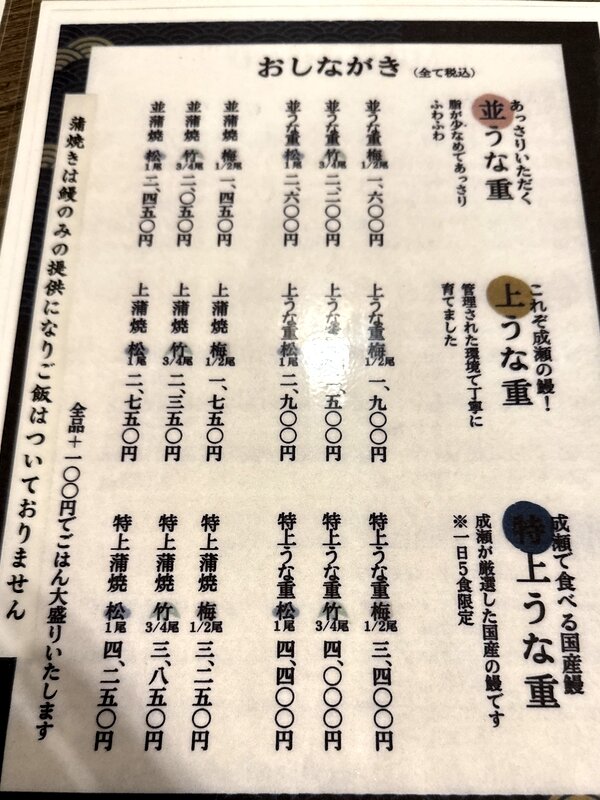 おしながき(全て税込)
あっさりいただく
並うな重
脂が少なめであっさり
ふわふわ
並うな重 梅 1/2尾 一、六〇〇円
並うな重 竹 3/4尾 二、二〇〇円
並うな重 松 1尾 二、六〇〇円
並蒲焼 梅 1/2尾 一、四五〇円
並蒲焼 竹 3/4尾 二、〇五〇円
並蒲焼 松 1尾 二、四五〇円
これぞ成瀬の鰻!
上うな重
管理された環境で丁寧に
育てました
上うな重 梅 1/2尾 一、九〇〇円
上うな 五〇〇円
上うな重 松 1尾 二、九〇〇円
上蒲焼 梅 1/2尾 一、七五〇円
上蒲焼 竹 3/4尾 二、三五〇円
上蒲焼 松 1尾 二、七五〇円
成瀬で食べる国産鰻
特上うな重
成瀬が厳選した国産の鰻です
※一日5食限定
特上うな重 梅 1/2尾 三、四〇〇円
特上うな重 竹 3/4尾 四、〇〇〇円
特上うな重 松 1尾 四、四〇〇円
特上蒲焼 梅 1/2尾 三、二五〇円
特上蒲焼 竹 3/4尾 三、八五〇円
特上蒲焼 松 1尾 四、二五〇円
全品+一〇〇円でごはん大盛りいたします
蒲焼きは鰻のみの提供になりご飯はついておりません